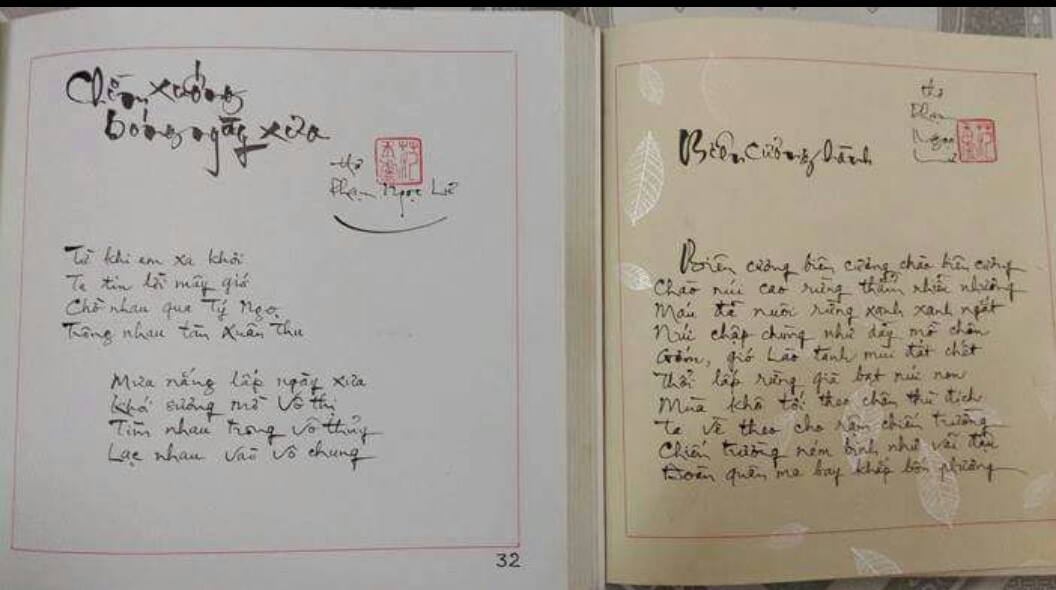 Chếnh xướng
bóng ngày xưa
thơ
Phạm Ngọc Lư
Từ khi em xa khơi
Ta tin lời mây gió
Chờ nhau qua Tý Ngọ
Trông nhau tàn Xuân Thu
Mưa nắng lấp ngày xưa
Khói sương mờ vô thỉ
Tìm nhau trong vô thủy
Lạc nhau vào vô chung
32
Biên cương hành
thơ
Phạm
Ngọc
Lư
Biên cương biên cương chào biên cương
Chào núi cao rừng thẳm nhiễu nhương
Máu đã nuôi rừng xanh xanh ngắt
Núi chập chùng như dãy mồ chôn
Gớm, gió Lào tanh mùi đất chết
Thổi lấp rừng già bạt núi non
Mùa khô tới theo chân thù địch
Ta về theo cho rậm chiến trường
Chiến trường ném binh như vãi đậu
Đoàn quân ma bay khắp bốn phương